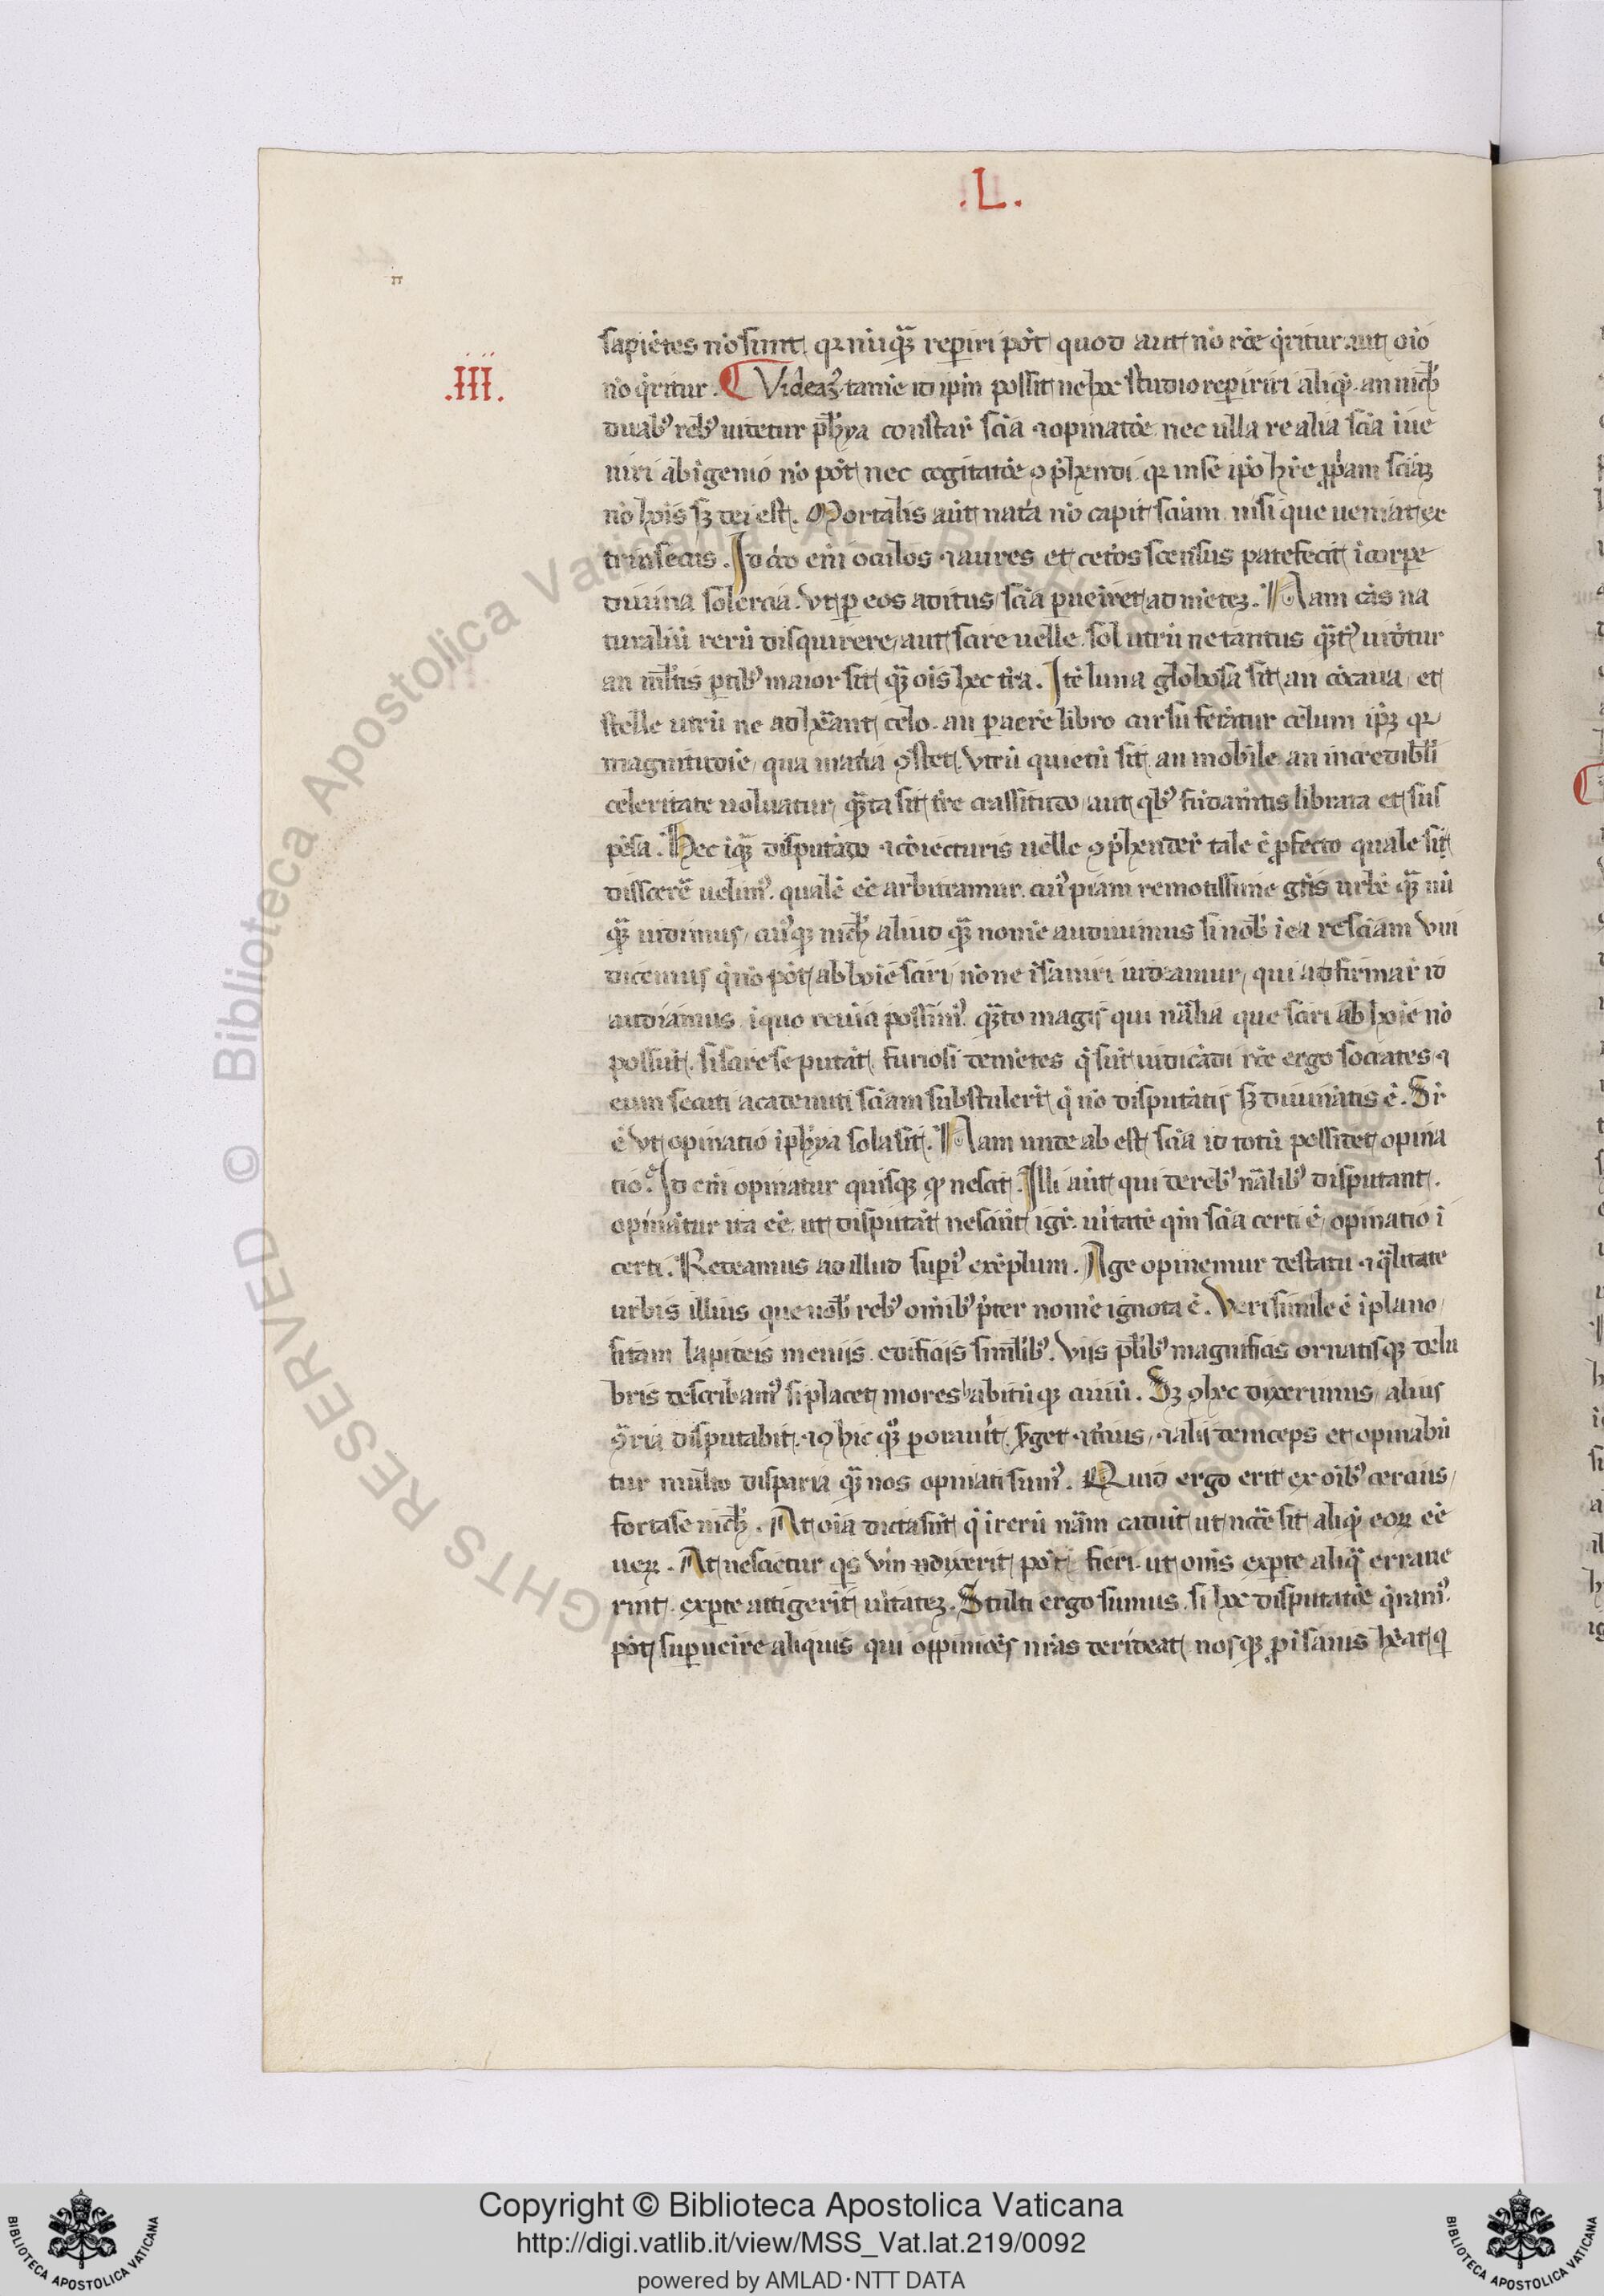 .L.
sapiẽtes nõ sunt, qꝛ nũqꝫ̃ reperiri põt quod aut nõ rc̃e q̃ritur aut oĩo
.III.
nõ q̃ritur. ¶ Videaꝫ tamẽ id ipm̃ possit ne hoc studio reperiri aliqd̃. an nich̃
duabꝰ rebꝰ uidetur ph̃ya constar̃ scĩa ⁊ opinatõe. nec ulla re alia scĩa ĩue
niri ab ĩgenio nõ põt nec cogitatõe ꝯp̃hendi. qꝛ in se ip̃o hr̃e ꝓpͥam scĩaꝫ
nõ hoĩs sꝫ dei est. Mortalis aũt nata nõ capit sciam. nisi que ueniat ex
trinsecus. Idc̃o em̃ oculos ⁊ aures et cetõs scensus patefecit ĩ corpe
diuina solercia. Vt ꝑ eos aditus scĩa ꝑueĩret ad mẽteꝫ. Nam cãs na
turaliũ rerũ disquirere, aut scire uelle. sol utrũ ne tantus qꝫ̃tꝰ uidẽtur
an ml̃tis ꝑtibꝰ maior sit qꝫ̃ oĩs hec tr̃a. Itẽ luna globosa sit an cõcaua, et
stelle utrũ ne adhẽant celo. an ꝑ aerẽ libro cursu ferãtur celum ip̃ꝫ qꝛ
magnitudĩe, qua mat̃ia ꝯstet. Vtrũ quietũ sit an mobile. an incredibil̃i
celeritate uoluatur, qꝫ̃ta sit tr̃e crassitudo, aut qbꝰ fũdam̃tis librata et sus
pẽsa. Hec ĩqꝫ̃ disputãdo ⁊ cõiecturis uelle ꝯp̃hender̃ tale ẽ ꝓfecto quale si
disscerẽ uelimꝰ. qualẽ eẽ arbitramur. cuiꝰpiam remotissime gẽtis urbẽ qꝫ̃ nũ
qꝫ̃ uidimus, cuiꝰqꝫ nich̃ aliud qꝫ̃ nomẽ audiuimus si nob̃ ĩ ea re sciam vin
dicemus q̃ nõ põt ab hoĩe sciri, nõne ĩsanire uideamur, qui adfirmar̃ id
audiamus ĩ quo reuĩci possimꝰ. qꝫ̃to magis qui nãlia que sciri ab hoĩe nõ
possũt. si scire se putãt. furiosi demẽtes q̃ sũt iudicãdi rc̃e ergo socrates ⁊
eum secuti academici sciam substulerũt q̃ nõ disputãtis sꝫ diuinãtis ẽ. Sr̃
ẽ vt opinatio ĩ ph̃ya sola sit. Nam unde ab est scĩa id totũ possidet opina
tio. Id em̃ opinatur quisqꝫ qd̃ nescit. Illi aũt qui de rebꝰ nãlibꝰ disputant.
opinãtur ita eẽ. ut disputãt nesciũt igr̃. ũitatẽ qm̃ scĩa certi ẽ, opinatio ĩ
certi. Redeamus ad illud supiꝰ exẽplum. Age opinemur de statu ⁊ q̃litate
urbis illius que nob̃ rebꝰ omĩbꝰ p̃ter nomẽ ignota ẽ. Verisimile ẽ ĩ plano
sitam lapideis meniis. edificiis siml̃ibꝰ. Viis pl̃ibꝰ magnificis ornatisqꝫ delu
bris describamꝰ si placet mores habitũqꝫ ciuiũ. Sꝫ ꝯ hec dixerimus, alius
ꝯ̃ria disputabit. ⁊ ꝯ hic qꝫ̃ ꝑorauit. ſꝰget ⁊ tĩus, ⁊ alij deinceps et opinabũ
tur multo disparia qꝫ̃ nos opinati sumꝰ. Quid ergo erit ex oĩbꝰ cercius,
fortasse nich̃. At oĩa dicta sũt q̃ ĩ rerũ nãm cadũt ut ncc̃e sit aliqd̃ eoꝝ eẽ
ueꝝ. At nescietur qs̃ vm̃ dixerit põt fieri. ut om̃s ex ꝑte aliqꝫ̃ erraue
rint. ex ꝑte attigerit ũitateꝫ. Stulti ergo sumus. si hoc disputatõe q̃rimꝰ.
põt suꝑueĩre aliquis qui oppiniões nr̃as derideat, nosqꝫ ꝓ ĩsanis hẽat, q̃
Copyright © Biblioteca Apostolica Vaticana
http://digi.vatlib.it/view/MSS_Vat.lat.219/0092
powered by AMLAD·NTT DATA
BIBLIOTECA APOSTOLICA VATICANA
BIBLIOTECA APOSTOLICA VATICANA